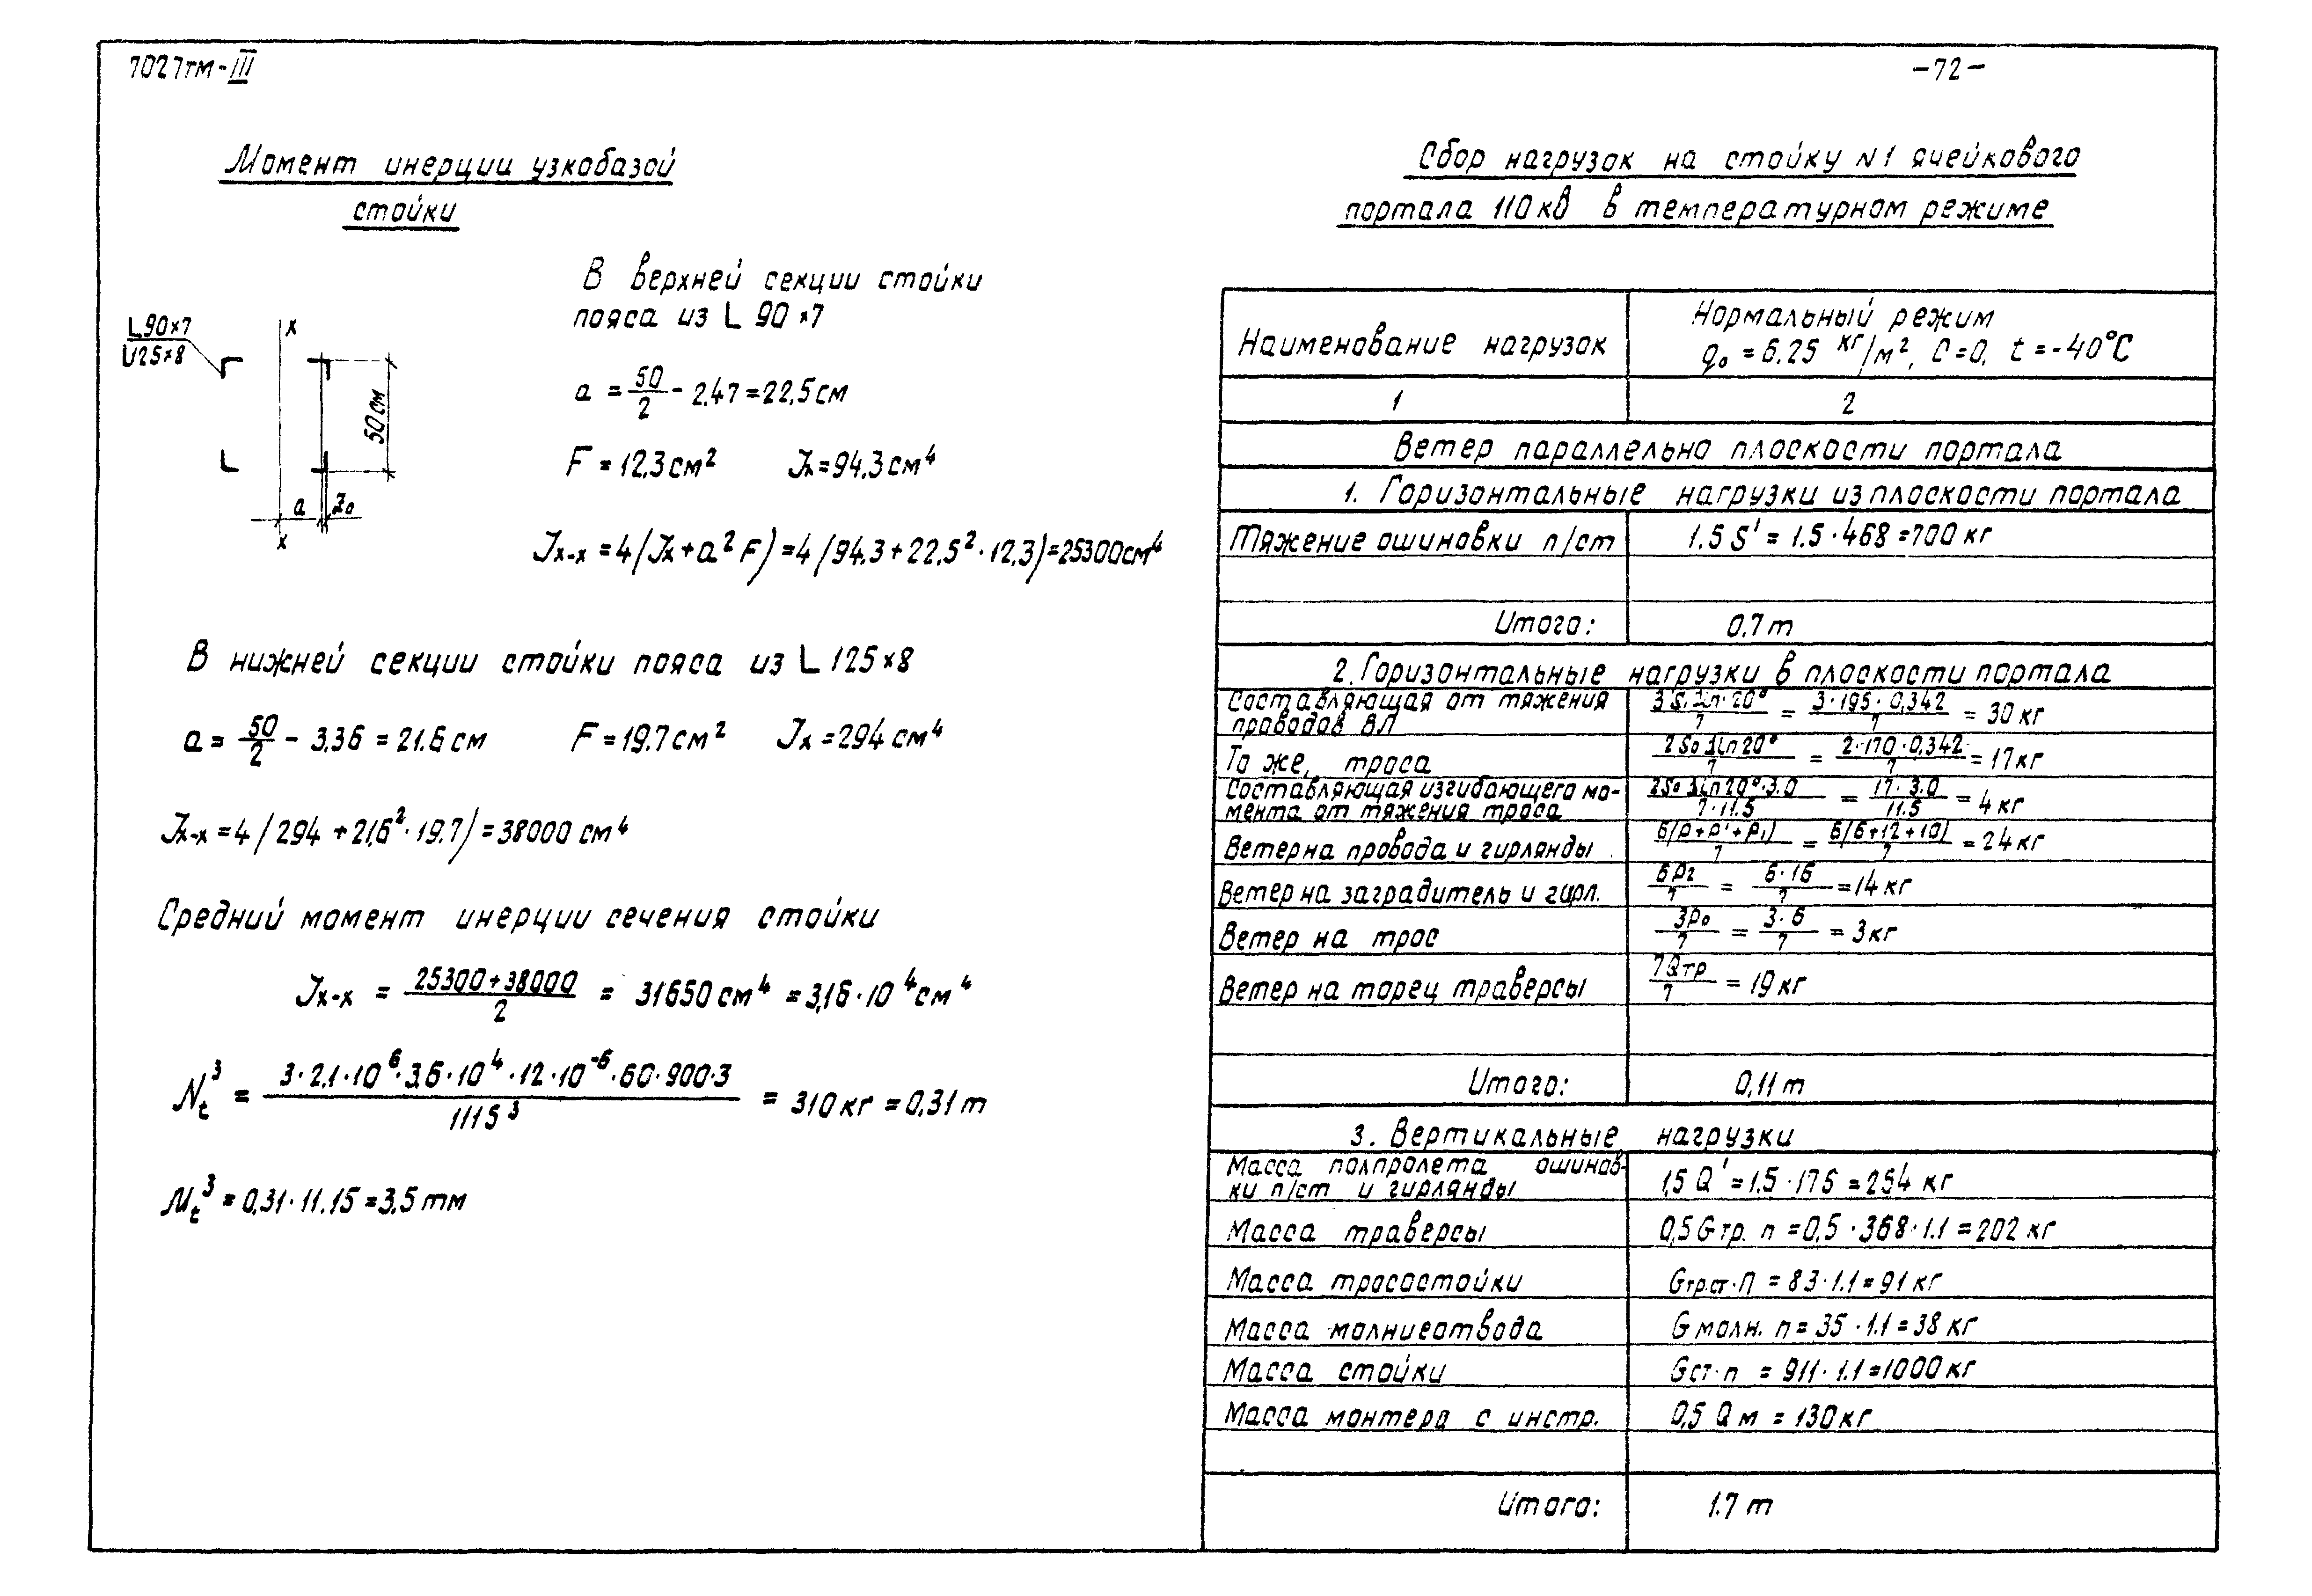 7027тм-III
-72-
Момент инерции узкобазой
стойки
В верхней секции стойки
пояса из L 90×7
L90×7
L125×8
x
50 см
a
Z₀
x
a = 50/2 - 2,47 = 22,5 см
F = 12,3 см² Jx = 94,3 см⁴
Jx-x = 4(Jx + a² F) = 4(94,3 + 22,5² · 12,3) = 25300 см⁴
В нижней секции стойки пояса из L 125×8
a = 50/2 - 3,36 = 21,6 см F = 19,7 см² Jx = 294 см⁴
Jx-x = 4(294 + 21,6² · 19,7) = 38000 см⁴
Средний момент инерции сечения стойки
Jx-x = (25300+38000)/2 = 31650 см⁴ = 3,16 · 10⁴ см⁴
Nt³ = (3 · 2,1 · 10⁶ · 3,6 · 10⁴ · 12 · 10⁻⁶ · 60 · 900 · 3)/1115³ = 310 кг = 0,31 т
Mt³ = 0,31 · 11,15 = 3,5 тм
Сбор нагрузок на стойку N1 ячейкового
портала 110 кв в температурном режиме
Наименование нагрузок
Нормальный режим
q₀ = 6.25 кг/м², C=0, t = -40°C
1 2
Ветер параллельно плоскости портала
1. Горизонтальные нагрузки из плоскости портала
Тяжение ошиновки п/ст 1.5 S' = 1.5 · 468 = 700 кг
Итого: 0,7 т
2. Горизонтальные нагрузки в плоскости портала
Составляющая от тяжения
проводов ВЛ 3 S₁ sin 20°/7 = 3 · 195 · 0,342/7 = 30 кг
То же, троса 2 S₀ sin 20°/7 = 2 · 170 · 0,342/7 = 17 кг
Составляющая изгибающего мо-
мента от тяжения троса 2 S₀ sin 20° · 3.0/7 · 11.5 = 17 · 3.0/11.5 = 4 кг
Ветер на провода и гирлянды 6(P+P'+P₁)/7 = 6(6+12+10)/7 = 24 кг
Ветер на заградитель и гирл. 6P₂/7 = 6 · 16/7 = 14 кг
Ветер на трос 3P₀/7 = 3 · 6/7 = 3 кг
Ветер на торец траверсы 7Qтр/7 = 19 кг
Итого: 0,11 т
3. Вертикальные нагрузки
Масса полпролета ошинов-
ки п/ст и гирлянды 1,5 Q' = 1.5 · 176 = 264 кг
Масса траверсы 0,5 Gтр. п = 0,5 · 368 · 1.1 = 202 кг
Масса тросостойки Gтр.ст · п = 83 · 1.1 = 91 кг
Масса молниеотвода G молн. п = 35 · 1.1 = 38 кг
Масса стойки Gст · п = 911 · 1.1 = 1000 кг
Масса монтера с инстр. 0,5 Q м = 130 кг
Итого: 1.7 т